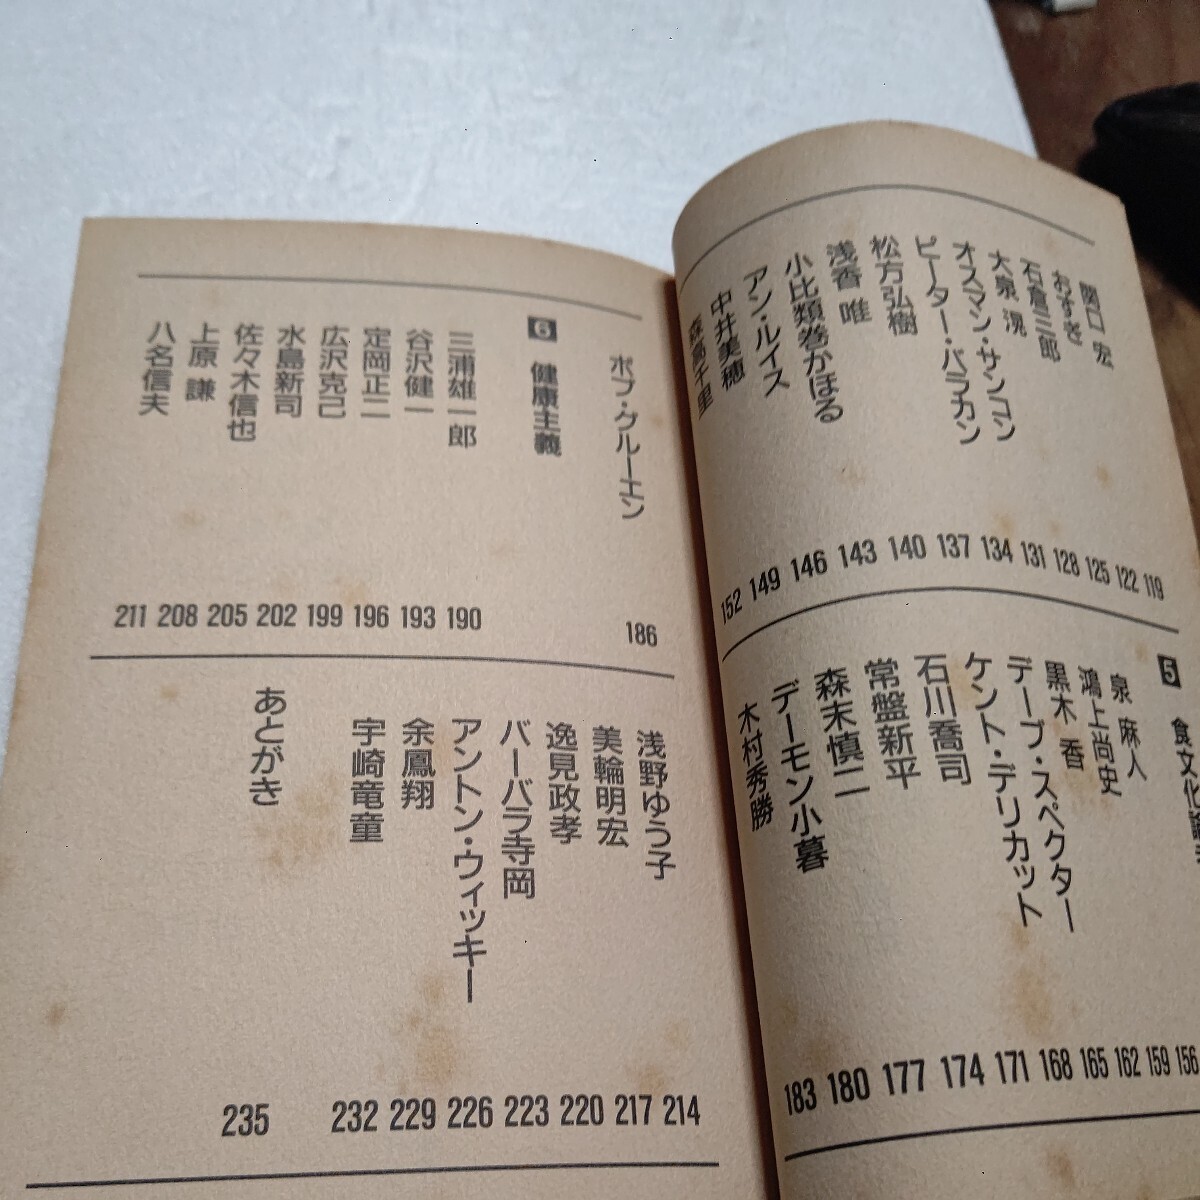 関口 宏 119
おすぎ 122
石倉三郎 125
大泉 滉 128
オスマン・サンコン 131
ピーター・バラカン 134
松方弘樹 137
浅香 唯 140
小比類巻かほる 143
アン・ルイス 146
中井美穂 149
森高千里 152
5 食文化
泉 麻人 156
鴻上尚史 159
黒木 香 162
デーブ・スペクター 165
ケント・デリカット 168
石川喬司 171
常盤新平 174
森末慎二 177
デーモン小暮 180
木村秀勝 183
ボブ・グルーエン 186
6 健康主義
三浦雄一郎 190
谷沢健一 193
定岡正二 196
広沢克己 199
水島新司 202
佐々木信也 205
上原 謙 208
八名信夫 211
浅野ゆう子 214
美輪明宏 217
逸見政孝 220
バーバラ寺岡 223
アントン・ウィッキー 226
余鳳翔 229
宇崎竜童 232
あとがき 235